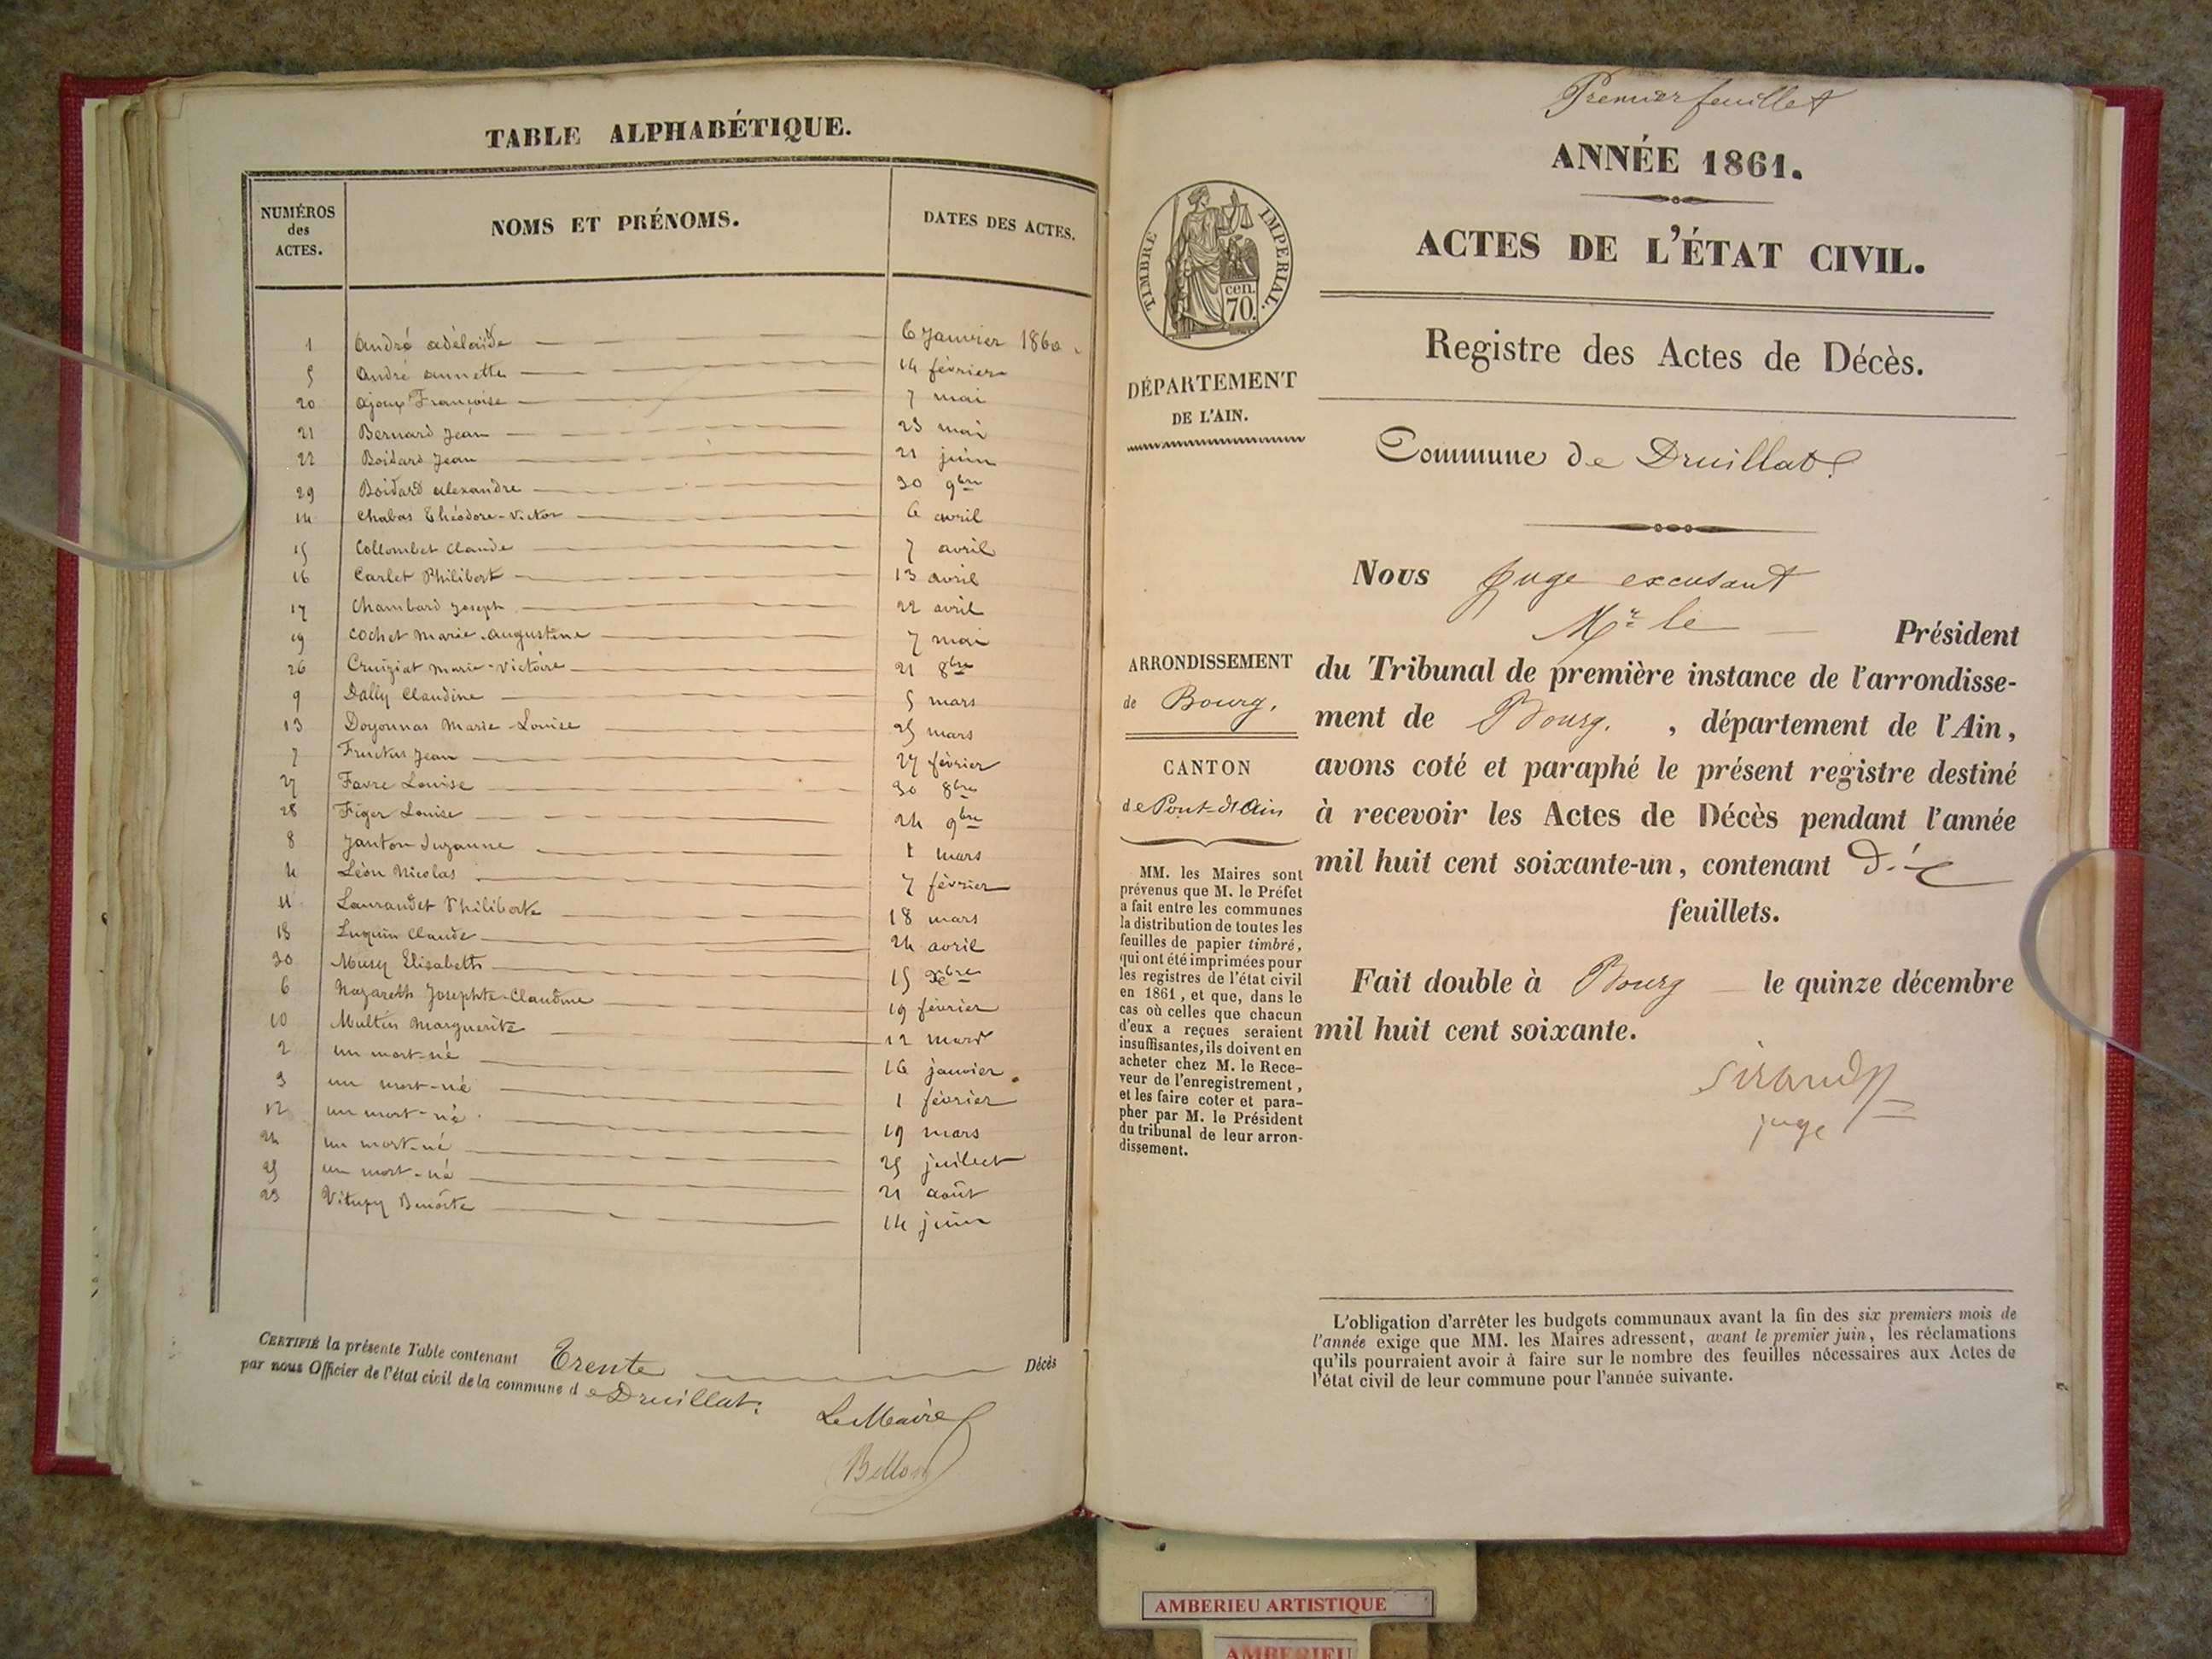 TABLE ALPHABÉTIQUE.
NUMÉROS des ACTES.
NOMS ET PRÉNOMS.
DATES DES ACTES.
1 André adélaïde 6 Janvier 1860
5 André annette 14 février
20 ajoux Françoise 7 mai
21 Bernard Jean 23 mai
22 Boidard Jean 21 juin
29 Boidard alexandre 30 9bre
14 Chabas Théodore-Victor 6 avril
15 Collombet Claude 7 avril
16 Carlet Philibert 13 avril
17 Chambard Joseph 22 avril
19 Cochet Marie-augustine 7 mai
26 Cruiziat Marie-Victoire 21 8bre
9 Dally Claudine 5 mars
13 Doyonnas Marie-Louise 25 mars
7 Fructus Jean 27 février
27 Favre Louise 30 8bre
28 Figer Louise 24 9bre
8 Janton Suzanne 1 mars
4 Léon Nicolas 7 février
11 Laurandet Philiberte 18 mars
18 Luquin Claude 24 avril
30 Musy Elisabeth 15 Xbre
6 Nazareth Josephte-Claudine 19 février
10 Multin Marguerite 12 mars
2 un mort-né 16 janvier
3 un mort-né 1 février
12 un mort-né 19 mars
24 un mort-né 25 juillet
25 un mort-né 21 août
23 Benoîte 14 juin
CERTIFIÉ la présente Table contenant Trente Décès
par nous Officier de l'état civil de la commune de Druillat.
Le Maire
Bellon
Premier feuillet
ANNÉE 1861.
ACTES DE L'ÉTAT CIVIL.
Registre des Actes de Décès.
TIMBRE IMPERIAL.
cen.
70.
DÉPARTEMENT
DE L'AIN.
Commune de Druillat
Nous Juge excusant
Mr le Président
du Tribunal de première instance de l'arrondisse-
ment de Bourg. , département de l'Ain,
avons coté et paraphé le présent registre destiné
à recevoir les Actes de Décès pendant l'année
mil huit cent soixante-un, contenant
feuillets.
Fait double à Bourg le quinze décembre
mil huit cent soixante.
Sirand
juge
ARRONDISSEMENT
de Bourg.
CANTON
de Pont-d'Ain
MM. les Maires sont
prévenus que M. le Préfet
a fait entre les communes
la distribution de toutes les
feuilles de papier timbré,
qui ont été imprimées pour
les registres de l'état civil
en 1861, et que, dans le
cas où celles que chacun
d'eux a reçues seraient
insuffisantes, ils doivent en
acheter chez M. le Rece-
veur de l'enregistrement,
et les faire coter et para-
pher par M. le Président
du tribunal de leur arron-
dissement.
L'obligation d'arrêter les budgets communaux avant la fin des six premiers mois de
l'année exige que MM. les Maires adressent, avant le premier juin, les réclamations
qu'ils pourraient avoir à faire sur le nombre des feuilles nécessaires aux Actes de
l'état civil de leur commune pour l'année suivante.
AMBERIEU ARTISTIQUE
AMBERIEU